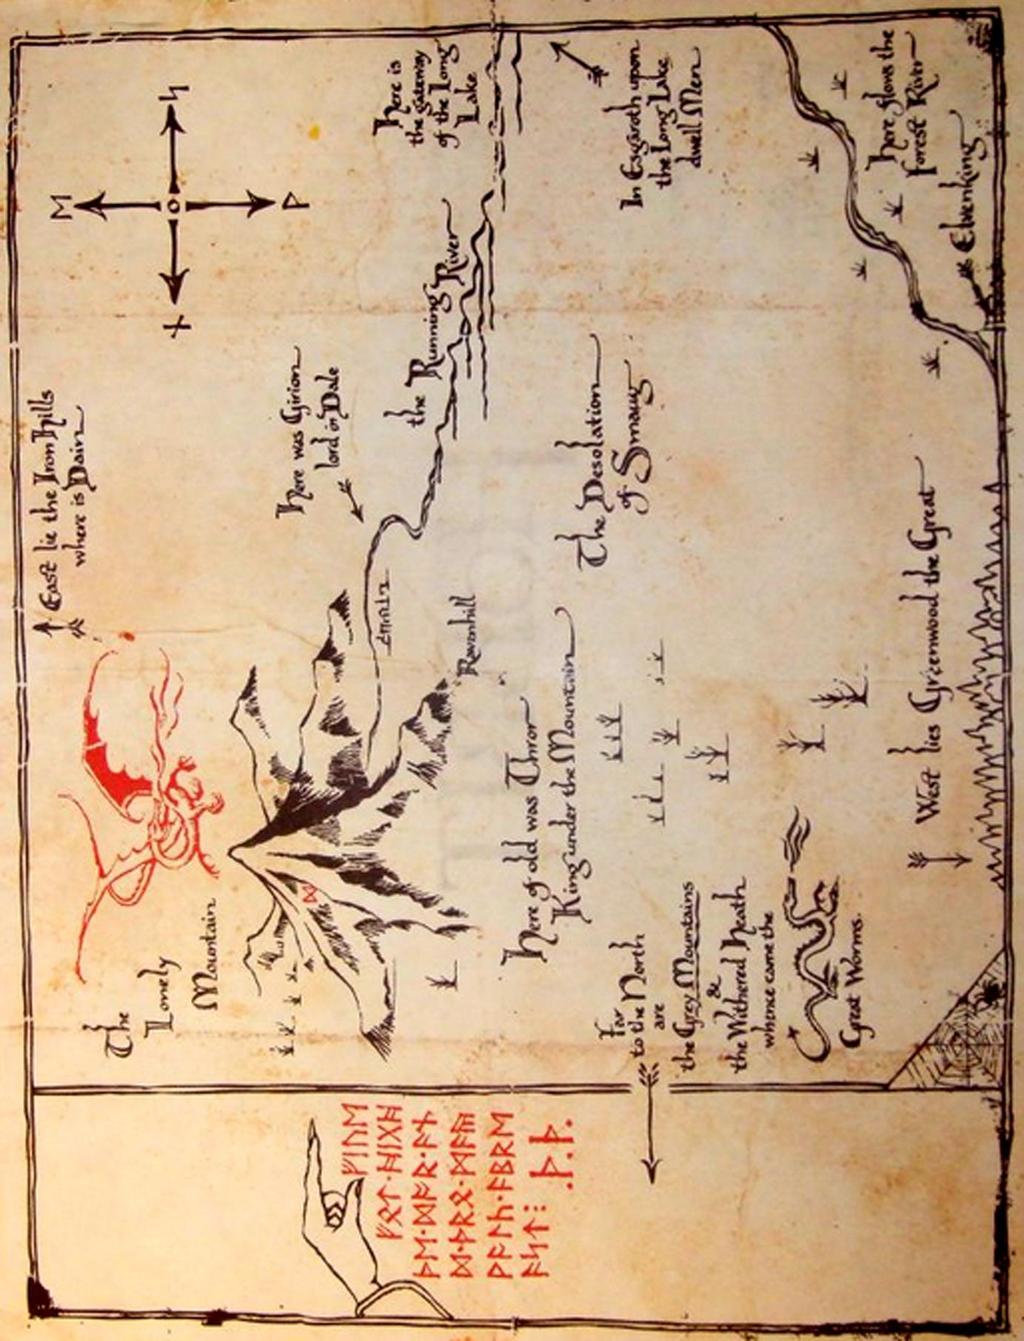 ᛖ
ᛋ
ᚹ
ᚾ
East lie the Iron Hills
where is Dain
The
Lonely
Mountain
Here was Girion
lord in Dale
Here is
the gateway
of the Long
Lake
the Running
River
Ravenhill
Here of old was Thror
King under the Mountain
The Desolation
of Smaug
In Esgaroth upon
the Long Lake
dwell Men
Far
to the North
are
the Grey Mountains
&
the Withered Heath
whence came the
Great Worms.
West lies Greenwood the Great
Here flows the
Forest River
Elvenking
ᚠᛁᚢᛖ
ᚠᛟᛏ·ᚻᛁᚷᚻ
ᚦᛖ·ᛞᚩᚱ·ᚪᚾ
ᛞ·ᚦᚱᛟ·ᛗᚪᚣ
ᚹᚪᛚᚳ·ᚪᛒᚱᛖ
ᚪᛋᛏ⋮
.ᚦ.ᚦ.